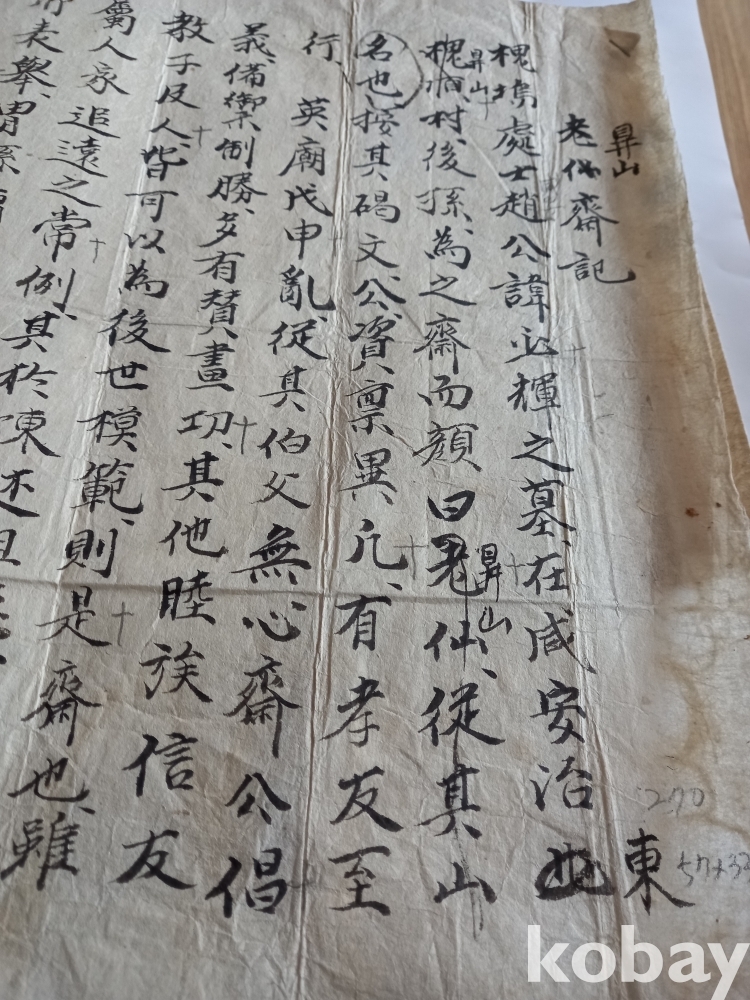 昇山
老仙齋記
槐塢處士趙公諱必輝之墓、在咸安治
東
昇山
槐洞村、後孫為之齋而額曰老仙、從其山
昇山
名也、按其碣文、公資稟異凡、有孝友至
行、英廟戊申亂、從其伯父無心齋公倡
義、備禦制勝、多有贊畫功、其他睦族信友
教子及人、皆可以為後世模範、則是齋也、雖
屬人家追遠之常例、其於
270
kobay